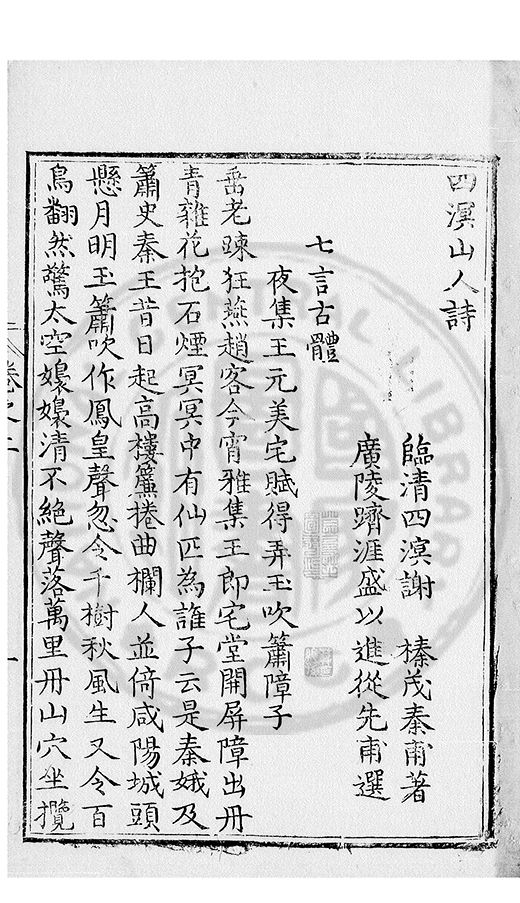 四溟山人詩
臨清四溟謝　榛茂秦甫著
廣陵躋涯盛以進從先甫選
七言古體
夜集王元美宅賦得弄玉吹簫障子
老踈狂燕趙客今宵雅集王郎宅堂開屏障出丹
青雜花抱石煙冥冥中有仙匹為誰子云是秦娥及
簫史秦王昔日起高樓簾捲曲欄人並倚咸陽城頭
懸月明玉簫吹作鳳皇聲忽令千樹秋風生又令百
鳥翻然驚太空嬝嬝清不絕聲落萬里丹山穴坐攬
卷之二
一